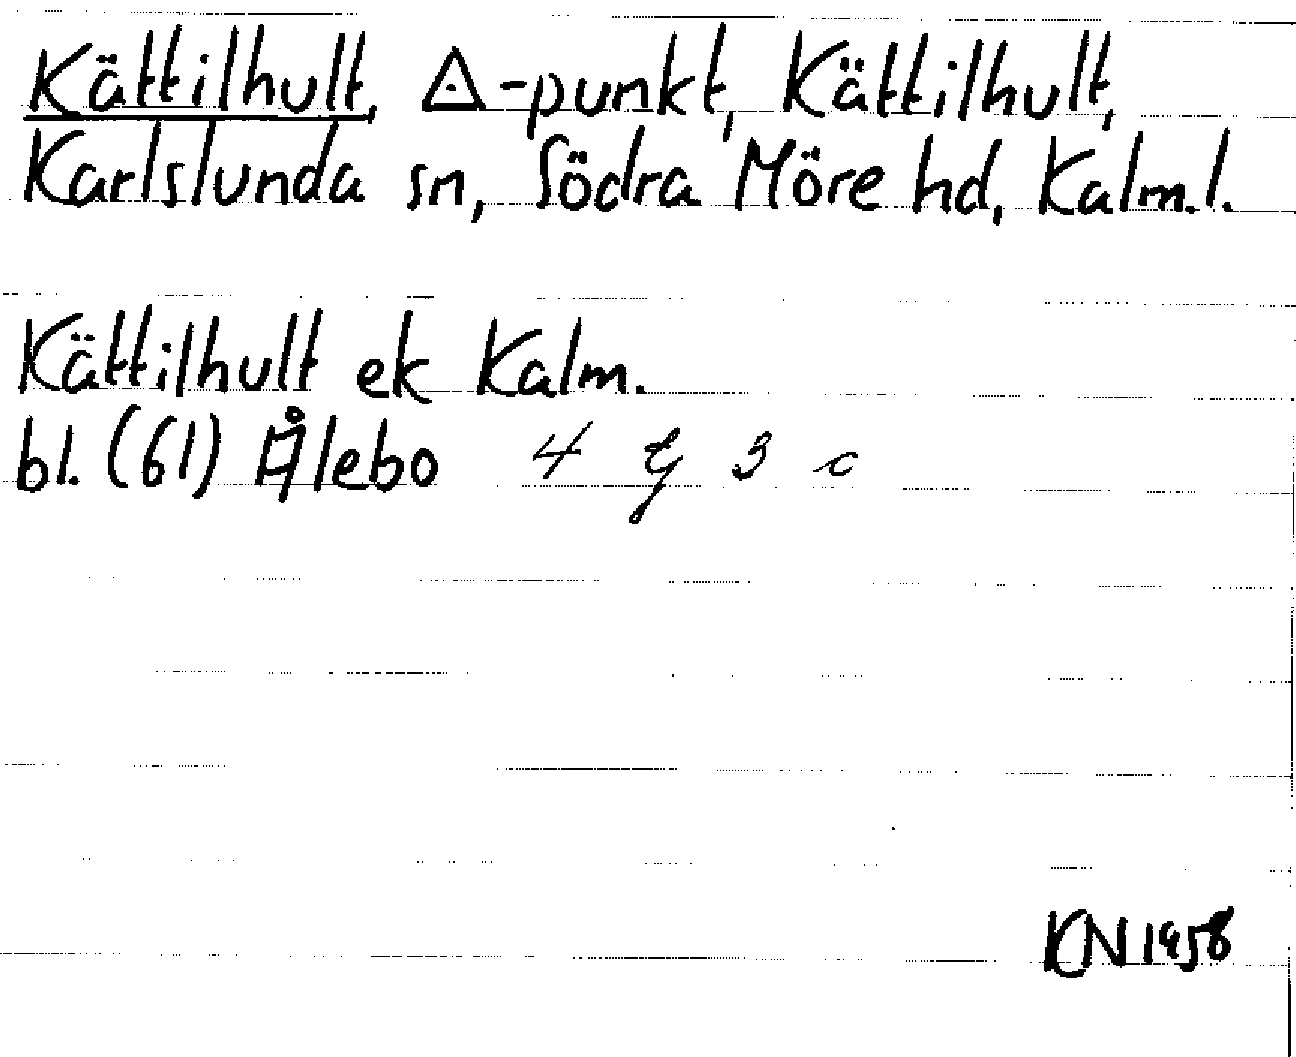 Kättilhult, △-punkt, Kättilhult,
Karlslunda sn, Södra Möre hd, Kalm.l.
Kättilhult ek Kalm.
bl. (61) Ålebo 4 G 3 c
KN 1958